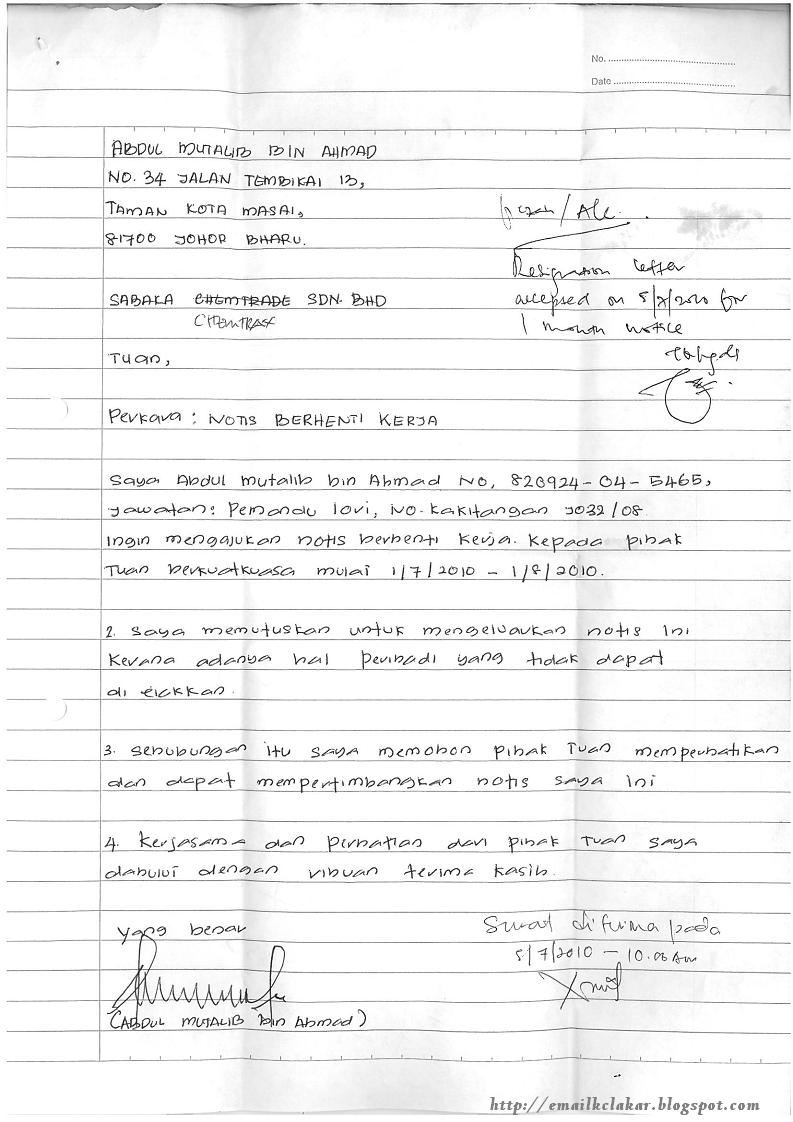 No. ....................
Date ....................
ABDUL MUTALIB BIN AHMAD
NO. 34 JALAN TEMBIKAI 13,
TAMAN KOTA MASAI,
81700 JOHOR BHARU.
/ Alc.
Resignation letter
accepted on 5/7/2010 for
1 month notice
SABAKA CHEMTRADE SDN. BHD
CHEMTRAX
Tuan,
Perkara : NOTIS BERHENTI KERJA
Saya Abdul mutalib bin Ahmad No, 820924-04-5465,
jawatan: Pemandu lori, No. Kakitangan J032/08
Ingin mengajukan notis berhenti kerja. kepada pihak
Tuan berkuatkuasa mulai 1/7/2010 - 1/8/2010.
2. Saya memutuskan untuk mengeluarkan notis ini
kerana adanya hal peribadi yang tidak dapat
di elakkan.
3. sehubungan itu saya memohon pihak Tuan memperhatikan
dan dapat mempertimbangkan notis saya ini
4. Kerjasama dan perhatian dari pihak Tuan saya
dahului dengan ribuan terima kasih.
yang benar
(ABDUL MUTALIB bin Ahmad)
Surat diterima pada
5/7/2010 - 10.00 Am
http://emailkclakar.blogspot.com